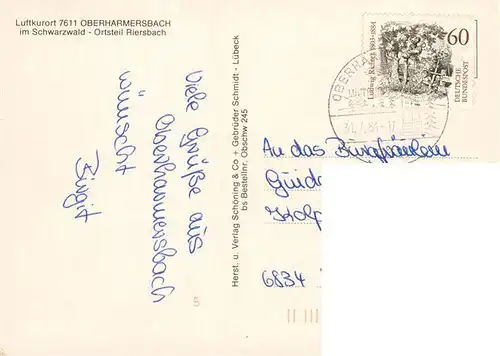 Luftkurort 7611 OBERHARMERSBACH
im Schwarzwald - Ortsteil Riersbach
Viele Grüße aus
Oberharmersbach
wünscht
Birgit
Herst. u. Verlag Schöning & Co + Gebrüder Schmidt - Lübeck
bs Bestellnr. Obschw 245
Ludwig Richter 1803-1884
60
DEUTSCHE
BUNDESPOST
OBERHA
An das Burgfräulein
Guid
6834
5